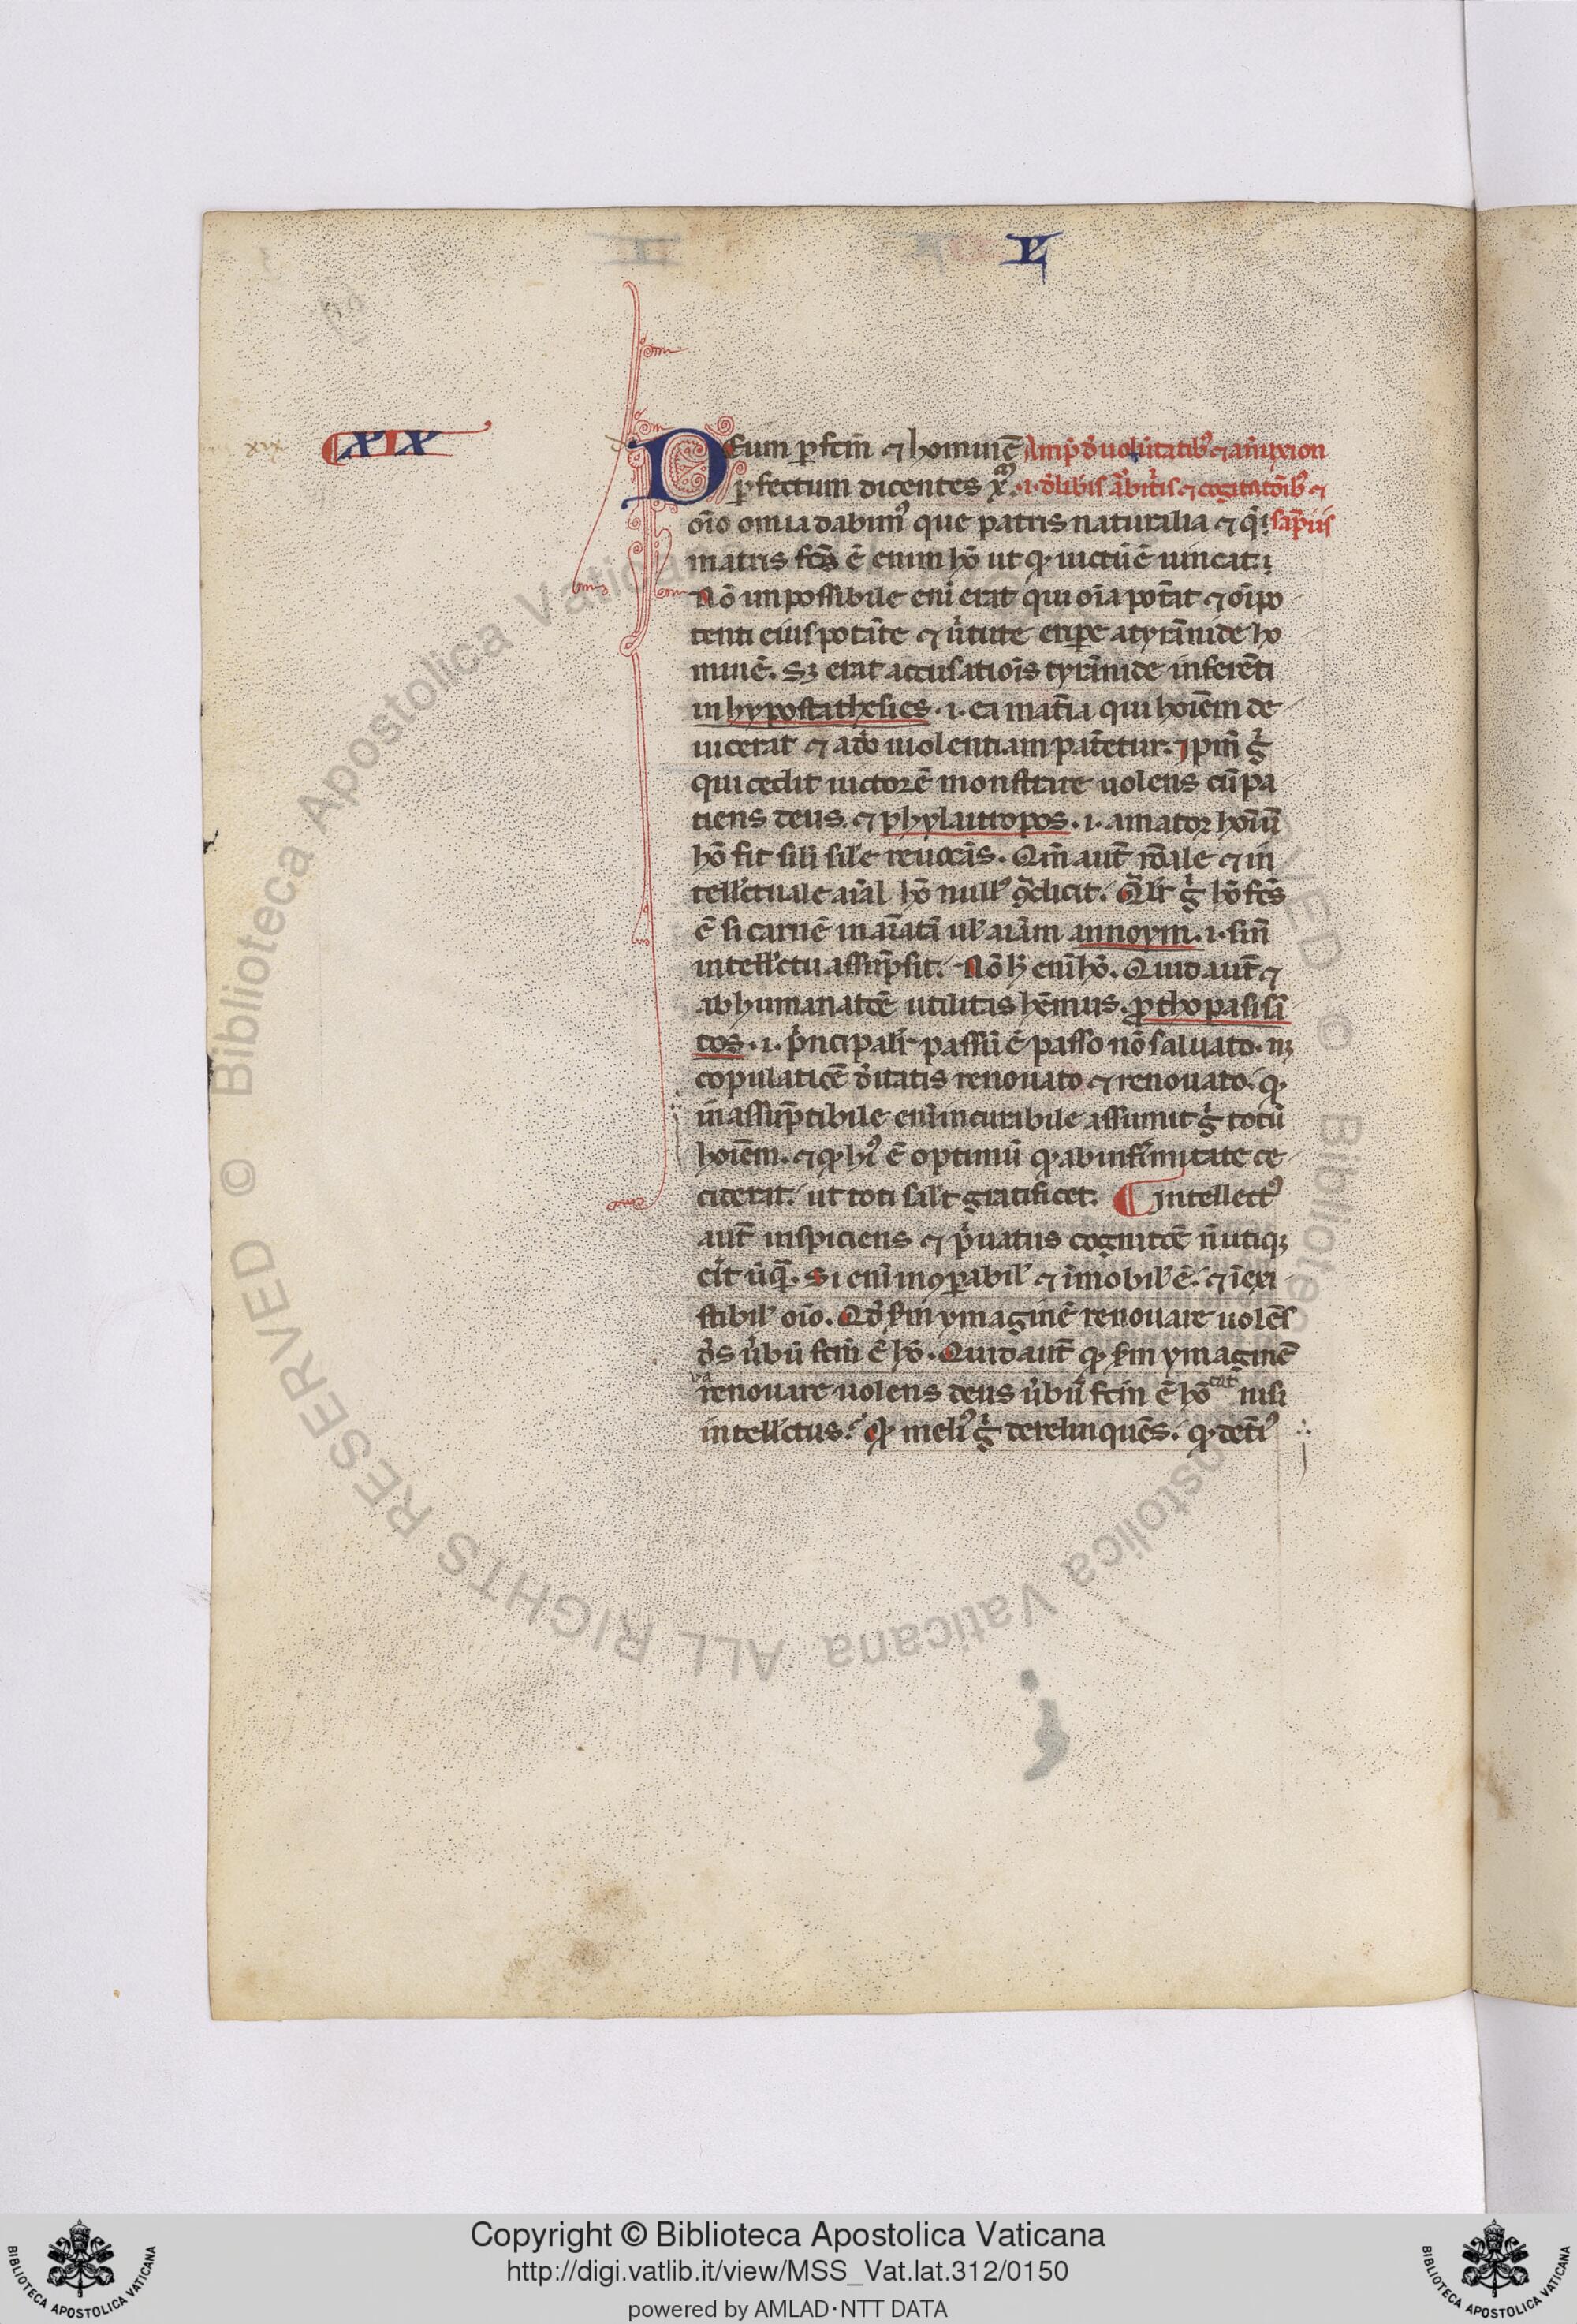 L
xix
XIX
Deum ꝑfcm̄ ⁊ hominē
Amp̄ de uolūtatibꝫ ⁊ amixion
ꝑfectum dicentes xp̄m.
.i. de libis arbitris ⁊ cogitatōibꝫ ⁊
oīo omia dabimꝰ que patris naturalia ⁊ q̄
sap̄iis
matris fcūs ē enim hō ut qđ uictū ē uincat.
Nō impossibile eni erat qui oīa potat ⁊ oīpo
tenti eius potāte ⁊ u̾tute eripe a tyrānide ho
minē. Sꝫ erat accusatiōis tyrānide inferēti
in hypostathesies .i. ea mat̄ia qui hoīem de
uicerat ⁊ ad uiolentiam patetur. ⁊ pm̄ g̾
qui cecidit uictorē monstrare uolens cū pa
tiens deus. ⁊ phylautropos .i. amator hoīū
hō fit sili sile reuocās. Qm̄ aut̄ rōale ⁊ in
tell̾ctuale aīal hō nullꝰ ꝯtdicit. Qual̾r g̾ hō fcs̄
ē si carnē inaīatā ul̾ aiām annoym .i. sin̄
intell̾ctu assūpsit. Nō h̾ enī hō. Quid aut̄ ⁊
ab humanatōe utilitatis hēmus. ꝓtho pasisā
tos .i. p̾ncipalr̾ passū ē passo nō saluato. nꝫ
copulatiōe d̾itatis renouato ⁊ renouato. qđ
inassūptibile enī incurabile assumit g̾ totū
hoīem. ⁊ qđ hiꝰ ē optimū qđ ab infirmitate ce
ciderat. ut toti salut̄ gratificet. Intellectꝰ
aut̄ inspiciens ⁊ p̾uatus cognitōe n̄ utiqꝫ
erit ūq̄. Si enī inoꝑabilꝭ ⁊ īmobilꝭ ē. ⁊ īexi
stibilꝭ oīo. Qd̾ sm̄ ymaginē renouare uolēs
d̄s u̾bū fcm̄ ē hō. Quid aut̄ qđ sm̄ ymaginē
renouare uolens deus u̾bū fcm̄ ē hō nisi
intell̾ctus. Qđ meliꝰ g̾ derelinquēs. qđ det̾iꝰ
Copyright © Biblioteca Apostolica Vaticana
http://digi.vatlib.it/view/MSS_Vat.lat.312/0150
powered by AMLAD·NTT DATA
BIBLIOTECA APOSTOLICA VATICANA
BIBLIOTECA APOSTOLICA VATICANA